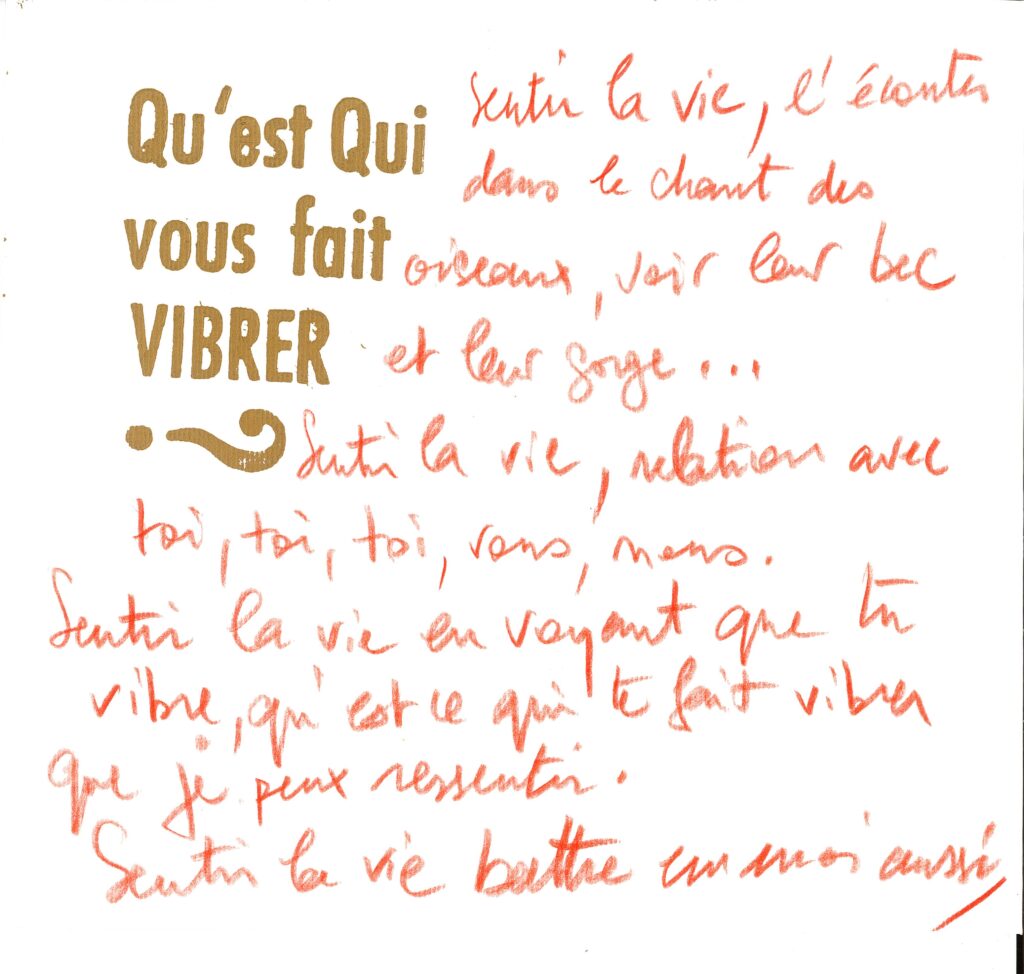 Qu'est Qui
vous fait
VIBRER
?
Sentir la vie, l'écouter
dans le chant des
oiseaux, voir leur bec
et leur gorge...
Sentir la vie, relation avec
toi, toi, toi, vous, nous.
Sentir la vie en voyant que tu
vibre, qu'est ce qui te fait vibrer
que je peux ressentir.
Sentir la vie battre en moi aussi,